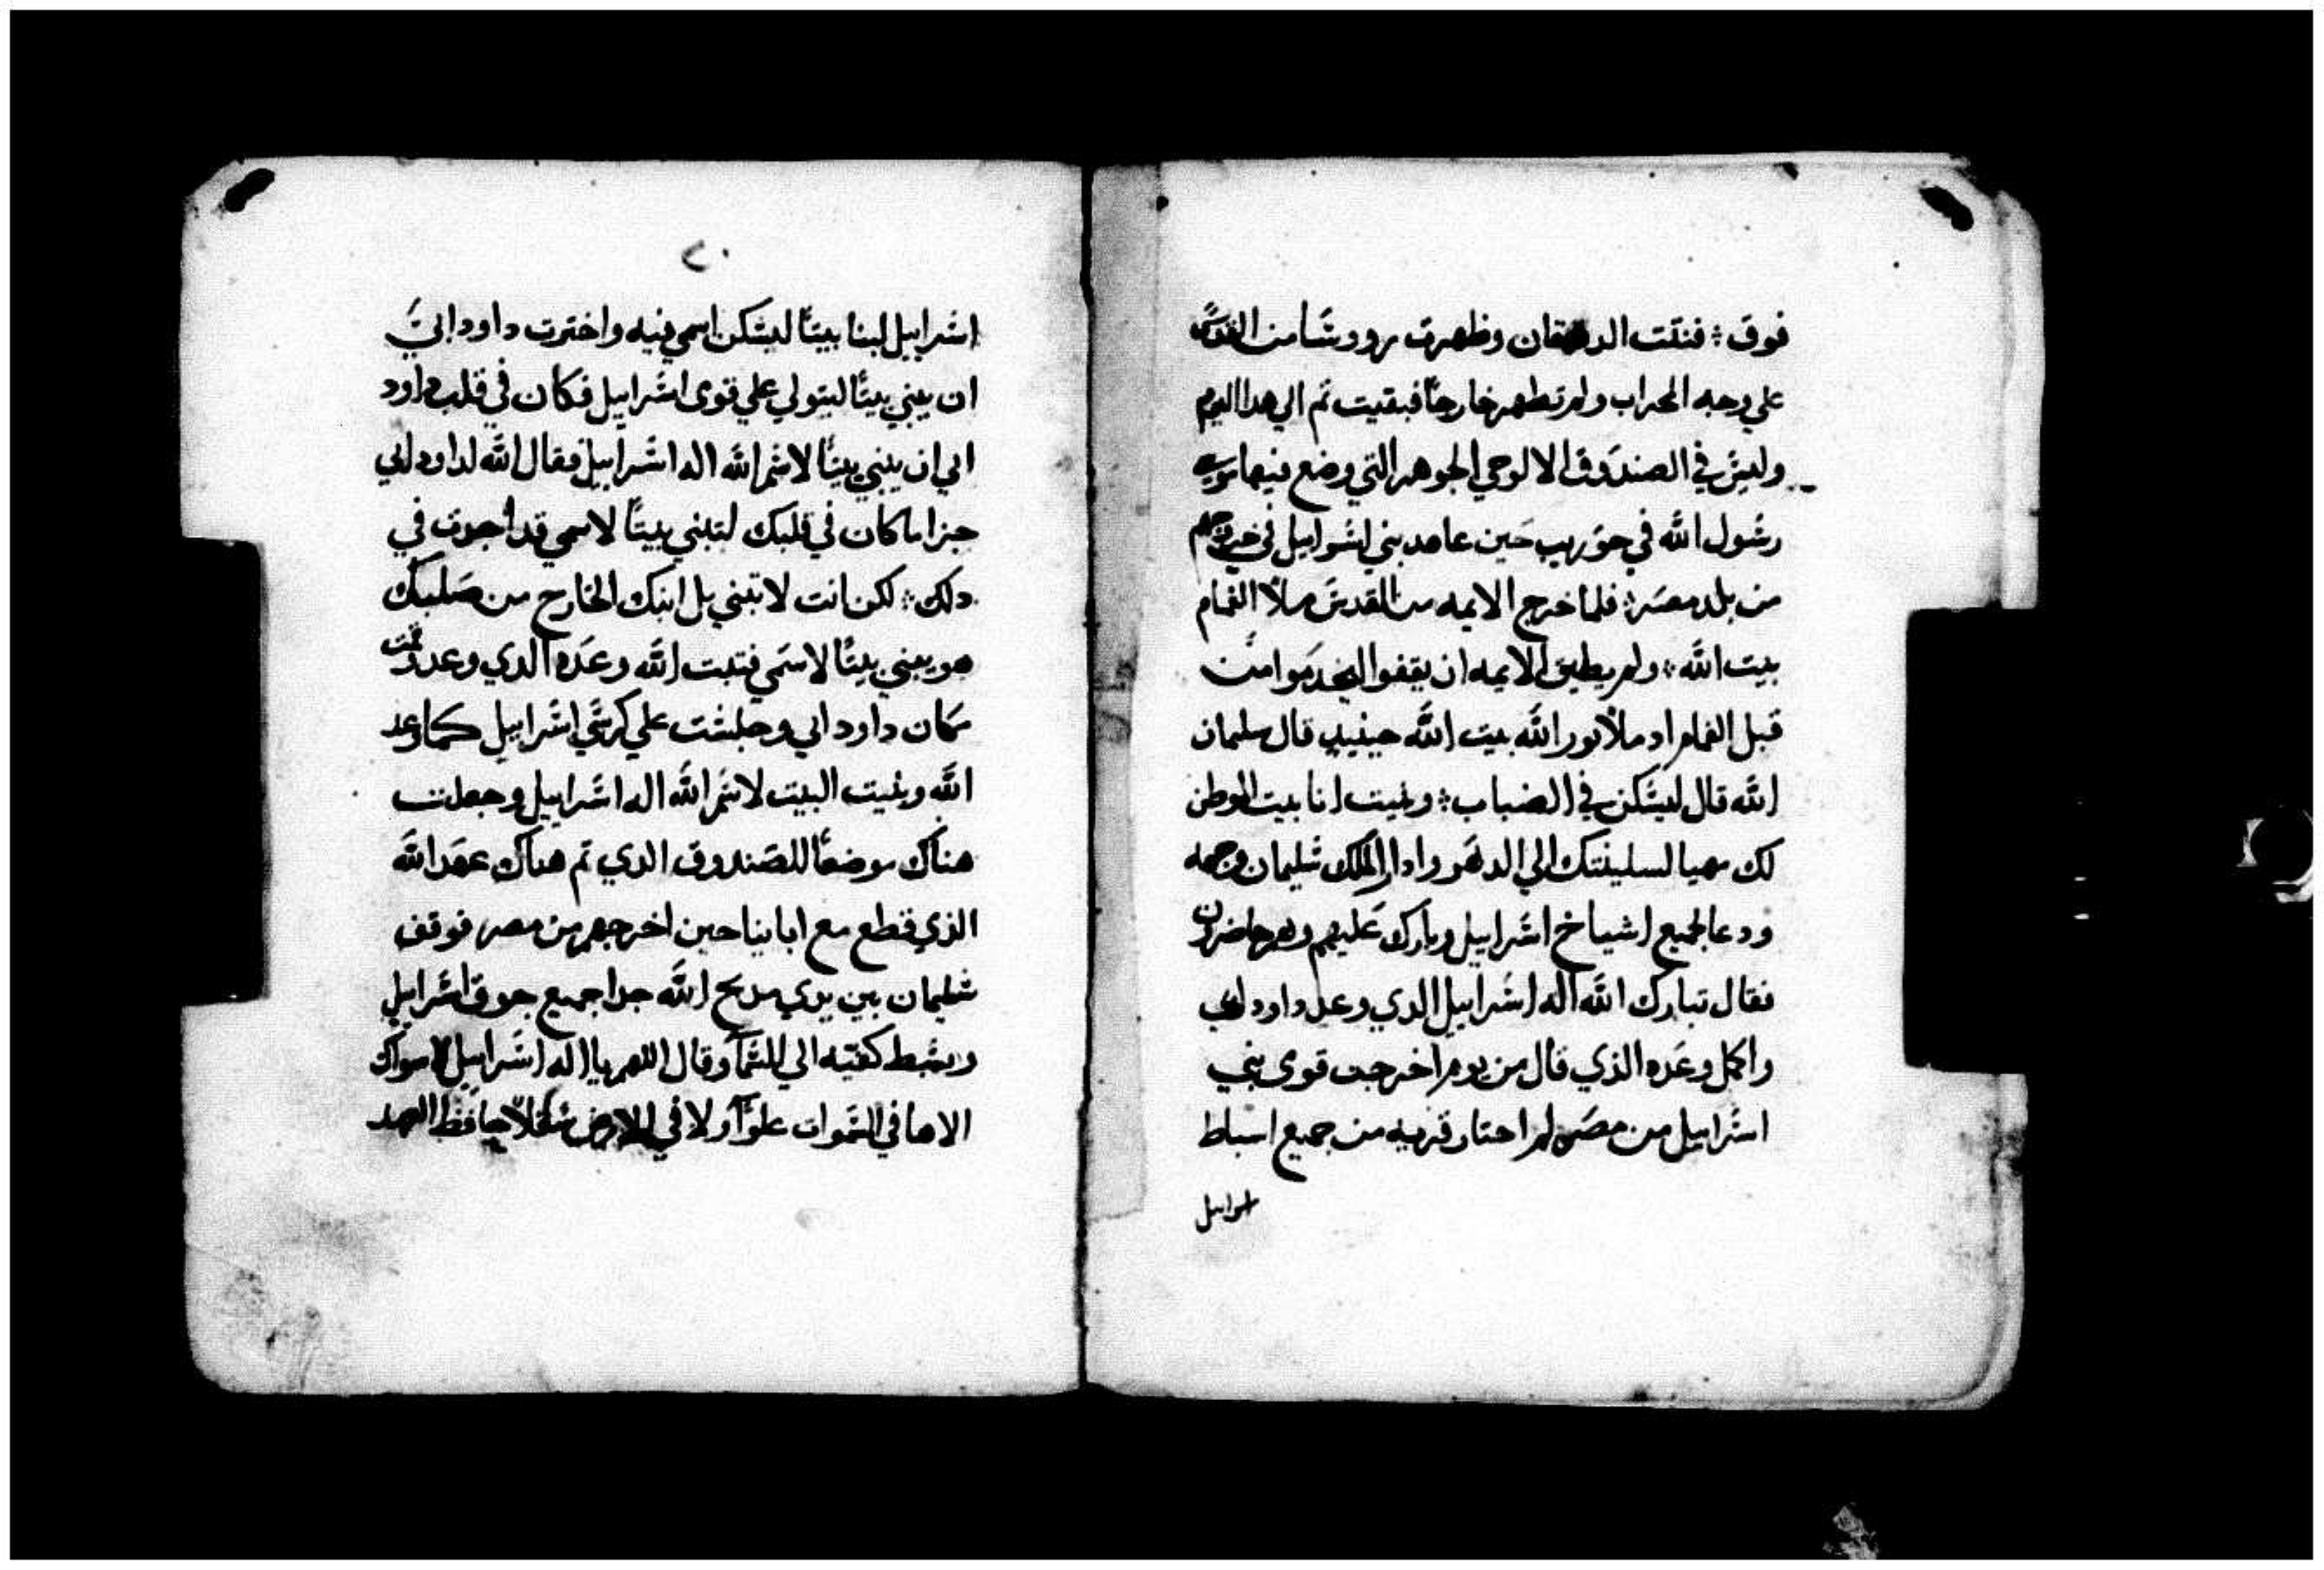 فوق ؞ فنتت الدهقان وظهرت رووسًا من القدس
علي وجه المحراب ولم تظهر خارجًا فبقيت ثم الي هدا اليوم
وليس في الصندوق الا لوحي الجوهر التي وضع فيها موسي
رسول الله في حوريب حين عاهد بني اسرابيل في خروجهم
من بلد مصر ؞ فلما خرج الايمه من القدس ملأ الغمام
بيت الله ؞ ولم يطيق الايمه ان يقفوا ليخدموا من
قبل الغمام اد ملأ نور الله بيت الله حينيد قال سليمان
الله قال ليسكن في الضباب ؞ وبنيت انا بيت الموطن
لك مهيا لسكينتك الي الدهور وادار الملك سليمان وجهه
ودعا لجميع اشياخ اسرابيل وبارك عليهم وهم حاضرون
فقال تبارك الله اله اسرابيل الدي وعد داود ابي
واكمل وعده الذي قال من يوم اخرجت قوى بني
اسرابيل من مصر لم احتار قريه من جميع اسباط
اسرابيل
٢٠
اسرابيل لبنا بيتًا ليسكن اسمي فيه واخترت داود ابي
ان يبني بيتًا ليتولي علي قوى اسرابيل فكان في قلب داود
ابي ان يبني بيتًا لاسم الله اله اسرابيل فقال الله لداود ابي
جزا ما كان في قلبك لتبني بيتًا لاسمي قد اجدت في
دلك ؞ لكن انت لا تبني بل ابنك الخارج من صلبك
هو يبني بيتًا لاسمي فتبت الله وعده الدي وعد وقمت
مكان داود ابي وجلست علي كرسي اسرابيل كما وعد
الله وبنيت البيت لاسم الله اله اسرابيل وجعلت
هناك موضعًا للصندوق الدي ثم هناك عهد الله
الذي قطع مع اباينا حين اخرجهم من مصر فوقف
سليمان بين يدي مدبح الله حدا جميع جوق اسرابيل
وبسط كفيه الي السمآ وقال اللهم يا اله اسرابيل لا سواك
الاها في السموات علوًا ولا في الارض سفلًا حافظ العهد